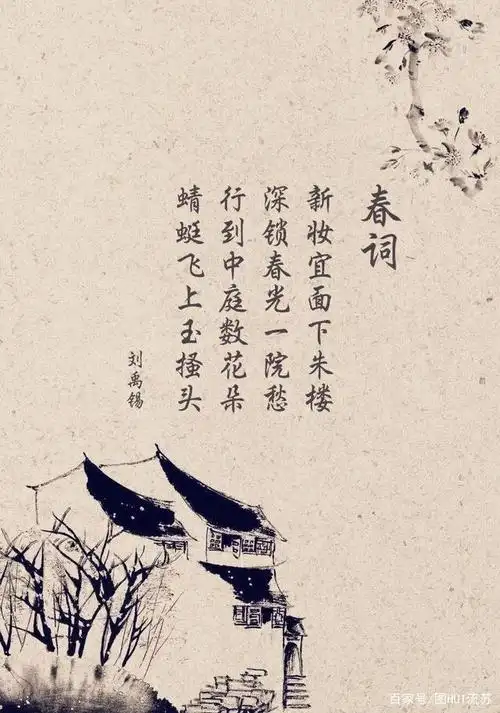 春词
新妆宜面下朱楼
深锁春光一院愁
行到中庭数花朵
蜻蜓飞上玉搔头
刘禹锡
百家号/图HUI流苏